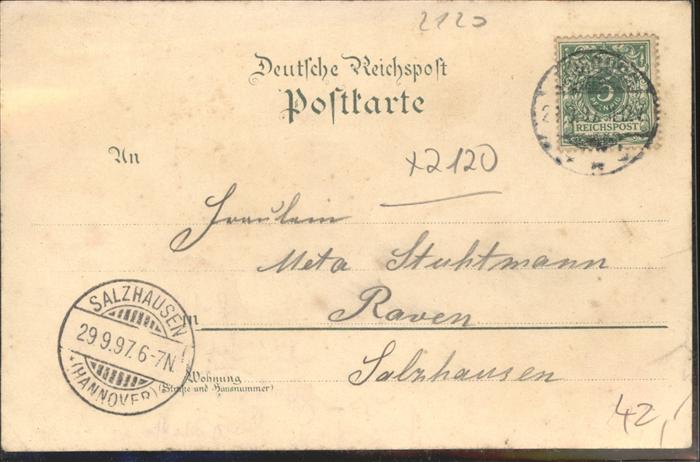 2120
Deutsche Reichspost
Postkarte
5
REICHSPOST
An
x2120
Fräulein
Meta Stuhtmann
in Raven
Salzhausen
Wohnung
(Straße und Hausnummer)
SALZHAUSEN
29.9.97.6-7N.
(HANNOVER)
42,